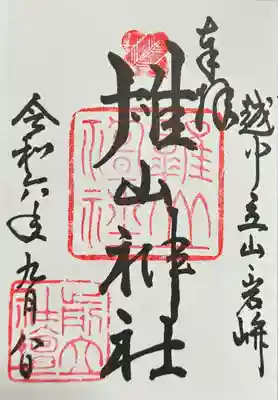 越中立山岩峅
奉拝
雄山神社
令和六年九月八日